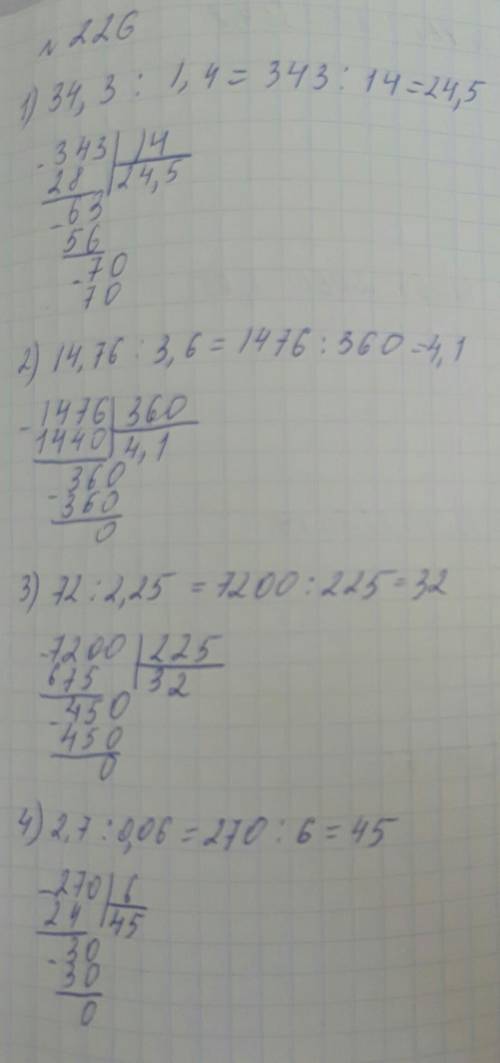 № 226
1) 34,3 : 1,4 = 343 : 14 = 24,5
- 343 | 14
28 24,5
- 63
56
- 70
70
2) 14,76 : 3,6 = 1476 : 360 = 4,1
- 1476 | 360
1440 4,1
- 360
- 360
0
3) 72 : 2,25 = 7200 : 225 = 32
- 7200 | 225
675 32
- 450
450
0
4) 2,7 : 0,06 = 270 : 6 = 45
- 270 | 6
24 45
- 30
30
0